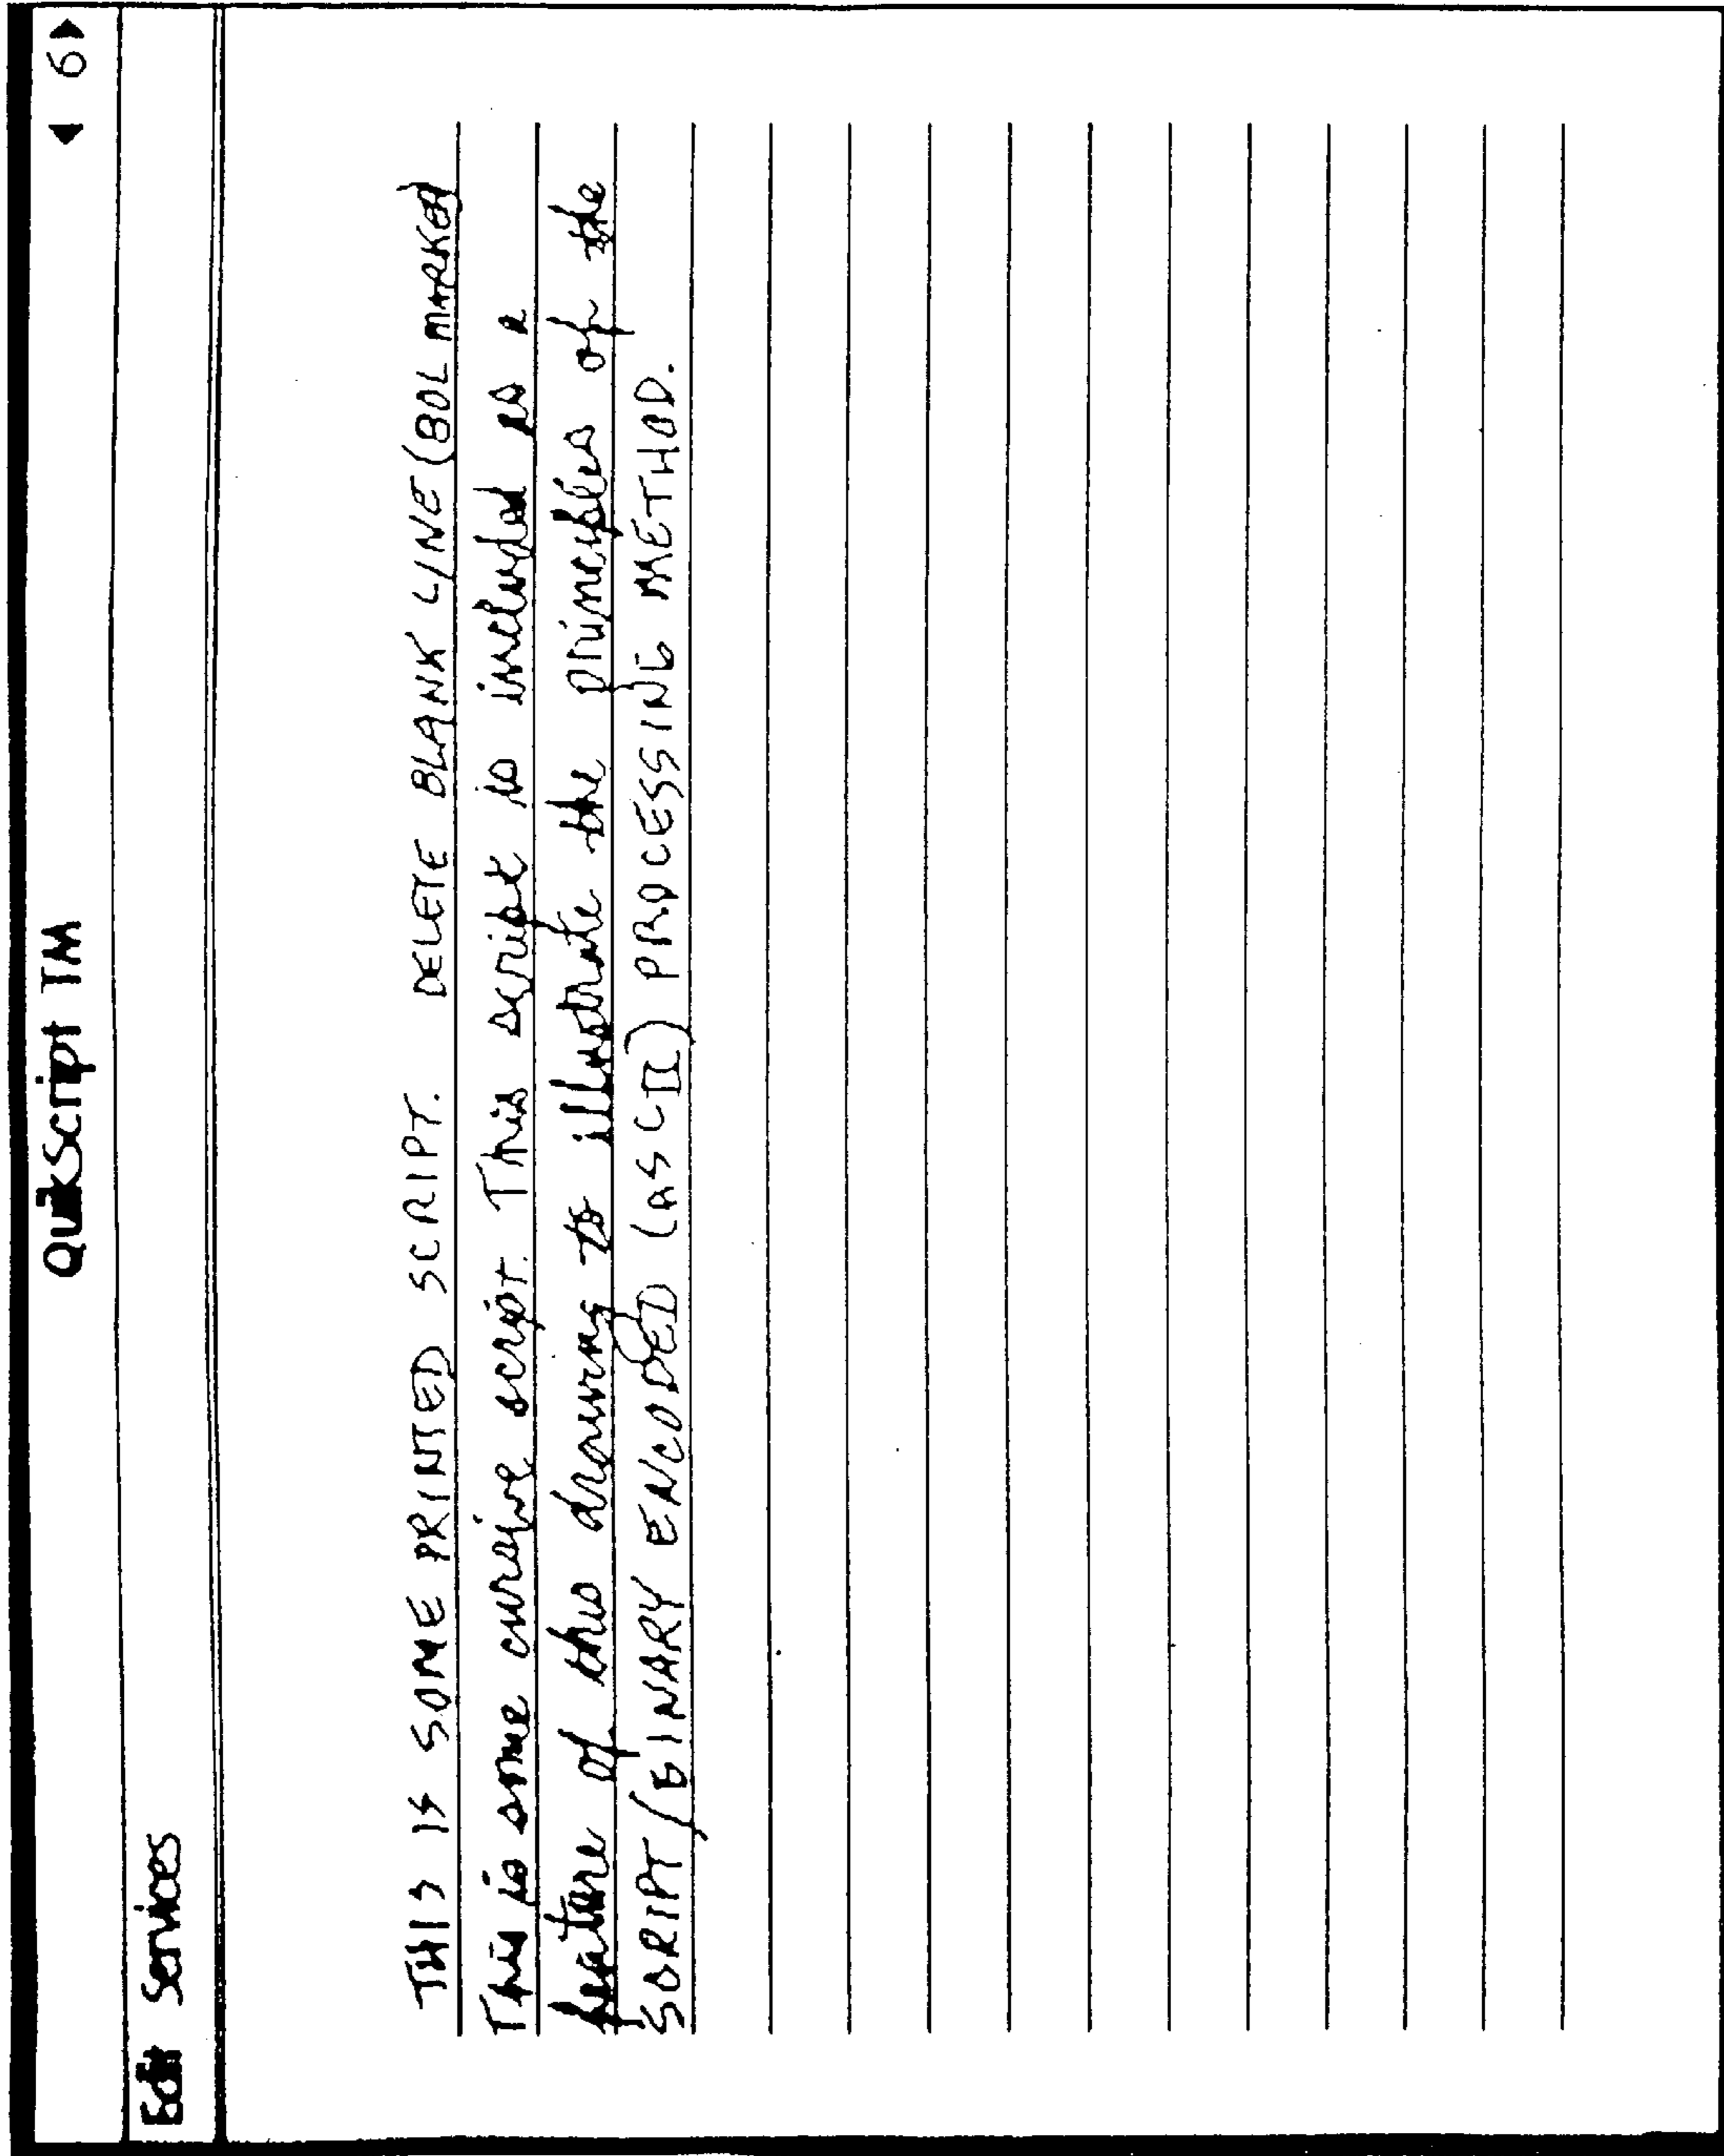 QuikScript TM ◀ 6▶
Edit Services
THIS IS SOME PRINTED SCRIPT. DELETE BLANK LINE (BOL MARKER)
This is some cursive script. This script is included as a
feature of this drawing to illustrate the principles of the
SCRIPT/BINARY ENCODED (ASCII) PROCESSING METHOD.